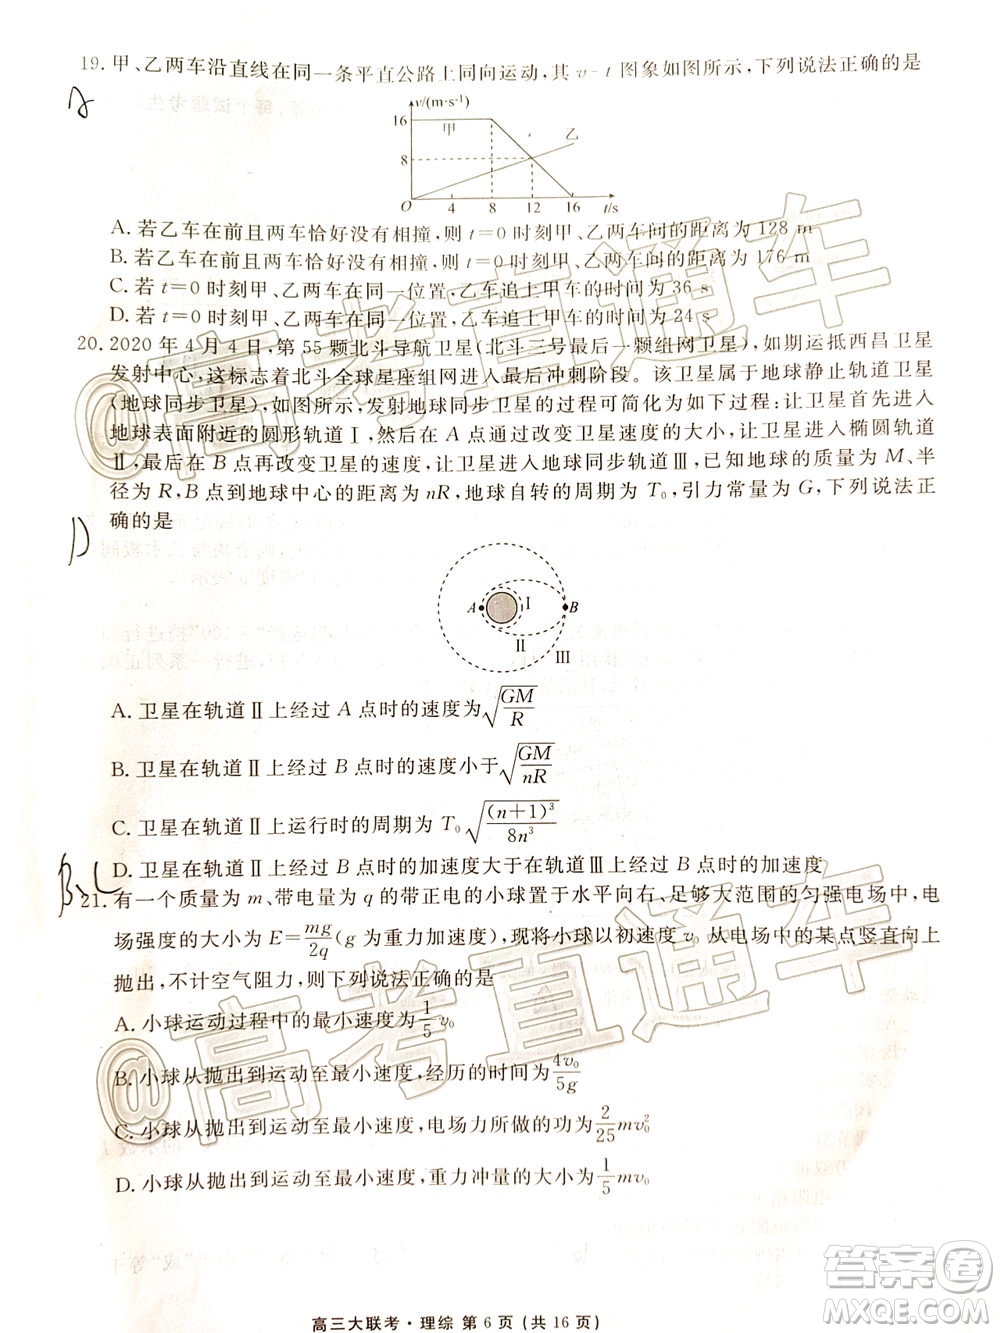 19. 甲、乙两车沿直线在同一条平直公路上同向运动,其 v-t 图象如图所示,下列说法正确的是
A
v/(m·s⁻¹)
16
甲
乙
8
O 4 8 12 16 t/s
A. 若乙车在前且两车恰好没有相撞,则 t=0 时刻甲、乙两车的距离为 128 m
B. 若乙车在前且两车恰好没有相撞,则 t=0 时刻甲、乙两车的距离为 176 m
C. 若 t=0 时刻甲、乙两车在同一位置,乙车追上甲车的时刻为 36 s
D. 若 t=0 时刻甲、乙两车在同一位置,乙车追上甲车的时刻为 24 s
20. 2020 年 4 月 4 日,第 55 颗北斗导航卫星(北斗三号最后一颗组网卫星),如期运抵西昌卫星
发射中心,这标志着北斗全球星座组网进入最后冲刺阶段。该卫星属于地球静止轨道卫星
(地球同步卫星),如图所示,发射地球同步卫星的过程可简化为如下过程:让卫星首先进入
地球表面附近的圆形轨道Ⅰ,然后在 A 点通过改变卫星速度的大小,让卫星进入椭圆轨道
Ⅱ,最后在 B 点再改变卫星的速度,让卫星进入地球同步轨道Ⅲ,已知地球的质量为 M、半
径为 R,B 点到地球中心的距离为 nR,地球自转的周期为 T₀,引力常量为 G,下列说法正
确的是
D
A Ⅰ B
Ⅱ
Ⅲ
A. 卫星在轨道Ⅱ上经过 A 点时的速度为√(GM/R)
B. 卫星在轨道Ⅱ上经过 B 点时的速度小于√(GM/nR)
C. 卫星在轨道Ⅱ上运行时的周期为 T₀√((n+1)³/8n³)
D. 卫星在轨道Ⅱ上经过 B 点时的加速度大于在轨道Ⅲ上经过 B 点时的加速度
21. 有一个质量为 m、带电量为 q 的带正电的小球置于水平向右、足够大范围的匀强电场中,电
场强度的大小为 E=mg/2q(g 为重力加速度),现将小球以初速度 v₀ 从电场中的某点竖直向上
抛出,不计空气阻力,则下列说法正确的是
A. 小球运动过程中的最小速度为 1/5 v₀
B. 小球从抛出到运动至最小速度,经历的时间为 4v₀/5g
C. 小球从抛出到运动至最小速度,电场力所做的功为 2/25 mv₀²
D. 小球从抛出到运动至最小速度,重力冲量的大小为 1/5 mv₀
高三大联考·理综 第 6 页 (共 16 页)
@高考直通车
@高考直通车
答案圈
MXQE.COM